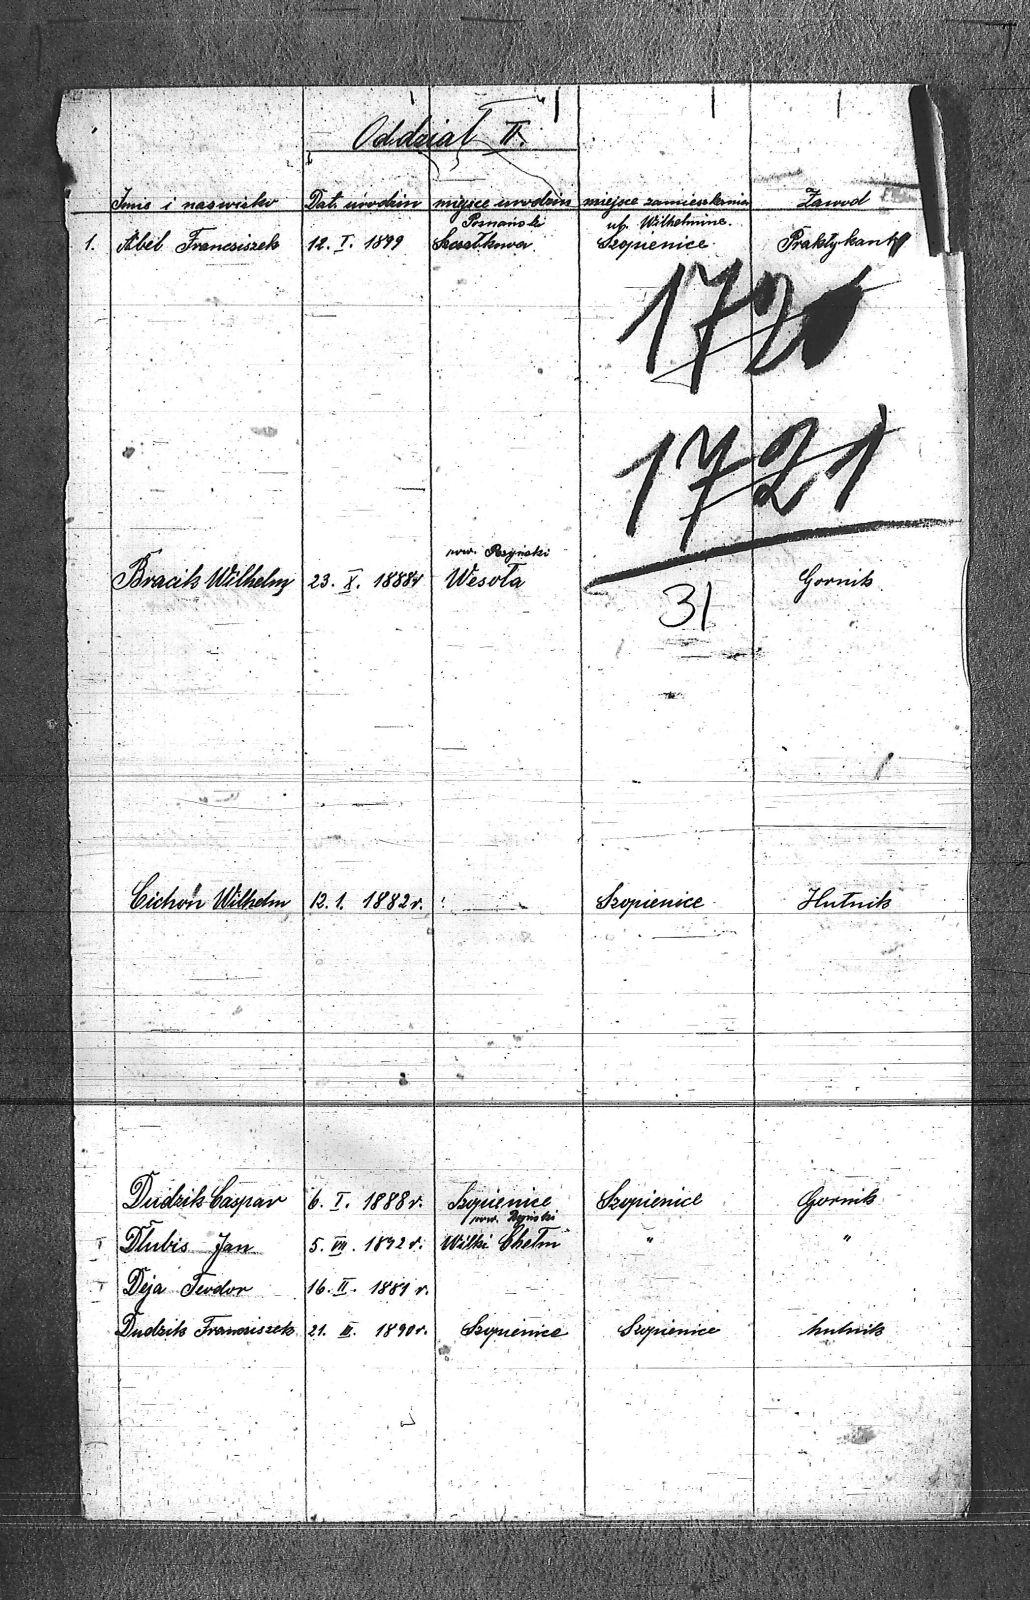 Oddział II.
Imie i naswisko Dat. urodzin miejsce urodzin miejsce zamieszkania Zawod
Poznański ul. Wilhelmine.
1. Abel Franciszek 12. I. 1899 Szopienice Praktykant
172
1721
31
pow. Pszyński
Bracik Wilhelm 23. X. 1888r Wesoła Gornik
Cichoń Wilhelm 12. 1. 1882 r. Szopienice Hutnik
Dudzik Caspar 6. I. 1888 r. Szopienice Szopienice Gornik
pow.
Dłubis Jan 5. VII. 1892 r. Wilki Chełm " "
Deja Teodor 16. II. 1881 r.
Dudzik Franciszek 21. III. 1890 r. Szopienice Szopienice hutnik